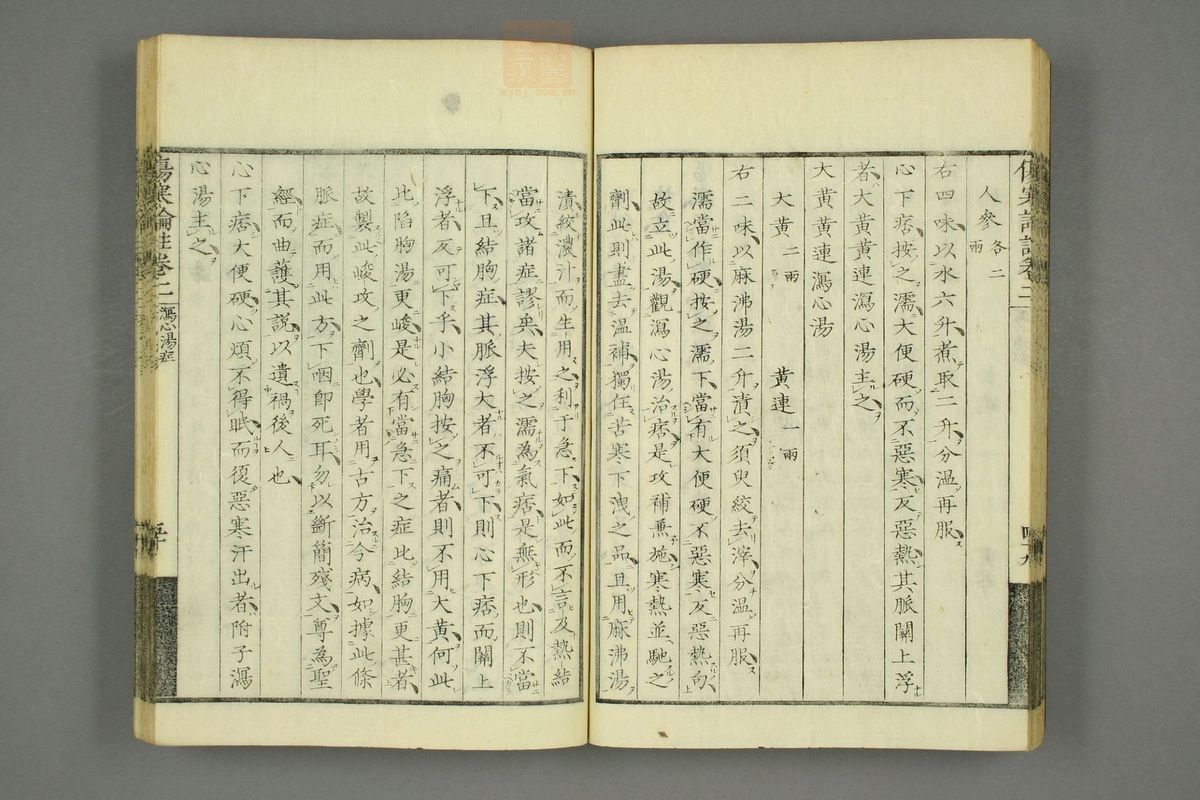 人參 各二兩
右四味以水六升煮取二升分溫再服
心下痞按之濡大便硬而不惡寒反惡熱其脈關上浮
者大黃黃連瀉心湯主之
大黃黃連瀉心湯
大黃 二兩 黃連 一兩
右二味以麻沸湯二升漬之須臾絞去滓分溫再服
濡當作硬按之濡下當有大便硬不惡寒反惡熱句
故立此湯觀瀉心湯治痞是攻補兼施寒熱並馳之
劑此則盡去溫補獨任苦寒下洩之品且用麻沸湯
漬絞濃汁而生用之利于急下如此而不言及熱結
當攻諸症謬矣夫按之濡為氣痞是無形也則不當
下且結胸症其脈浮大者不可下則心下痞而關上
浮者反可下乎小結胸按之痛者則不用大黃何此
比陷胸湯更峻是必有當急下之症比結胸更甚者
故製此峻攻之劑也學者用古方治今病如據此條
脈症而用此方下咽即死耳勿以斷簡殘文尊為聖
經而曲護其說以遺禍後人也
心下痞大便硬心煩不得眠而復惡寒汗出者附子瀉
心湯主之
傷寒論註卷二 瀉心湯症